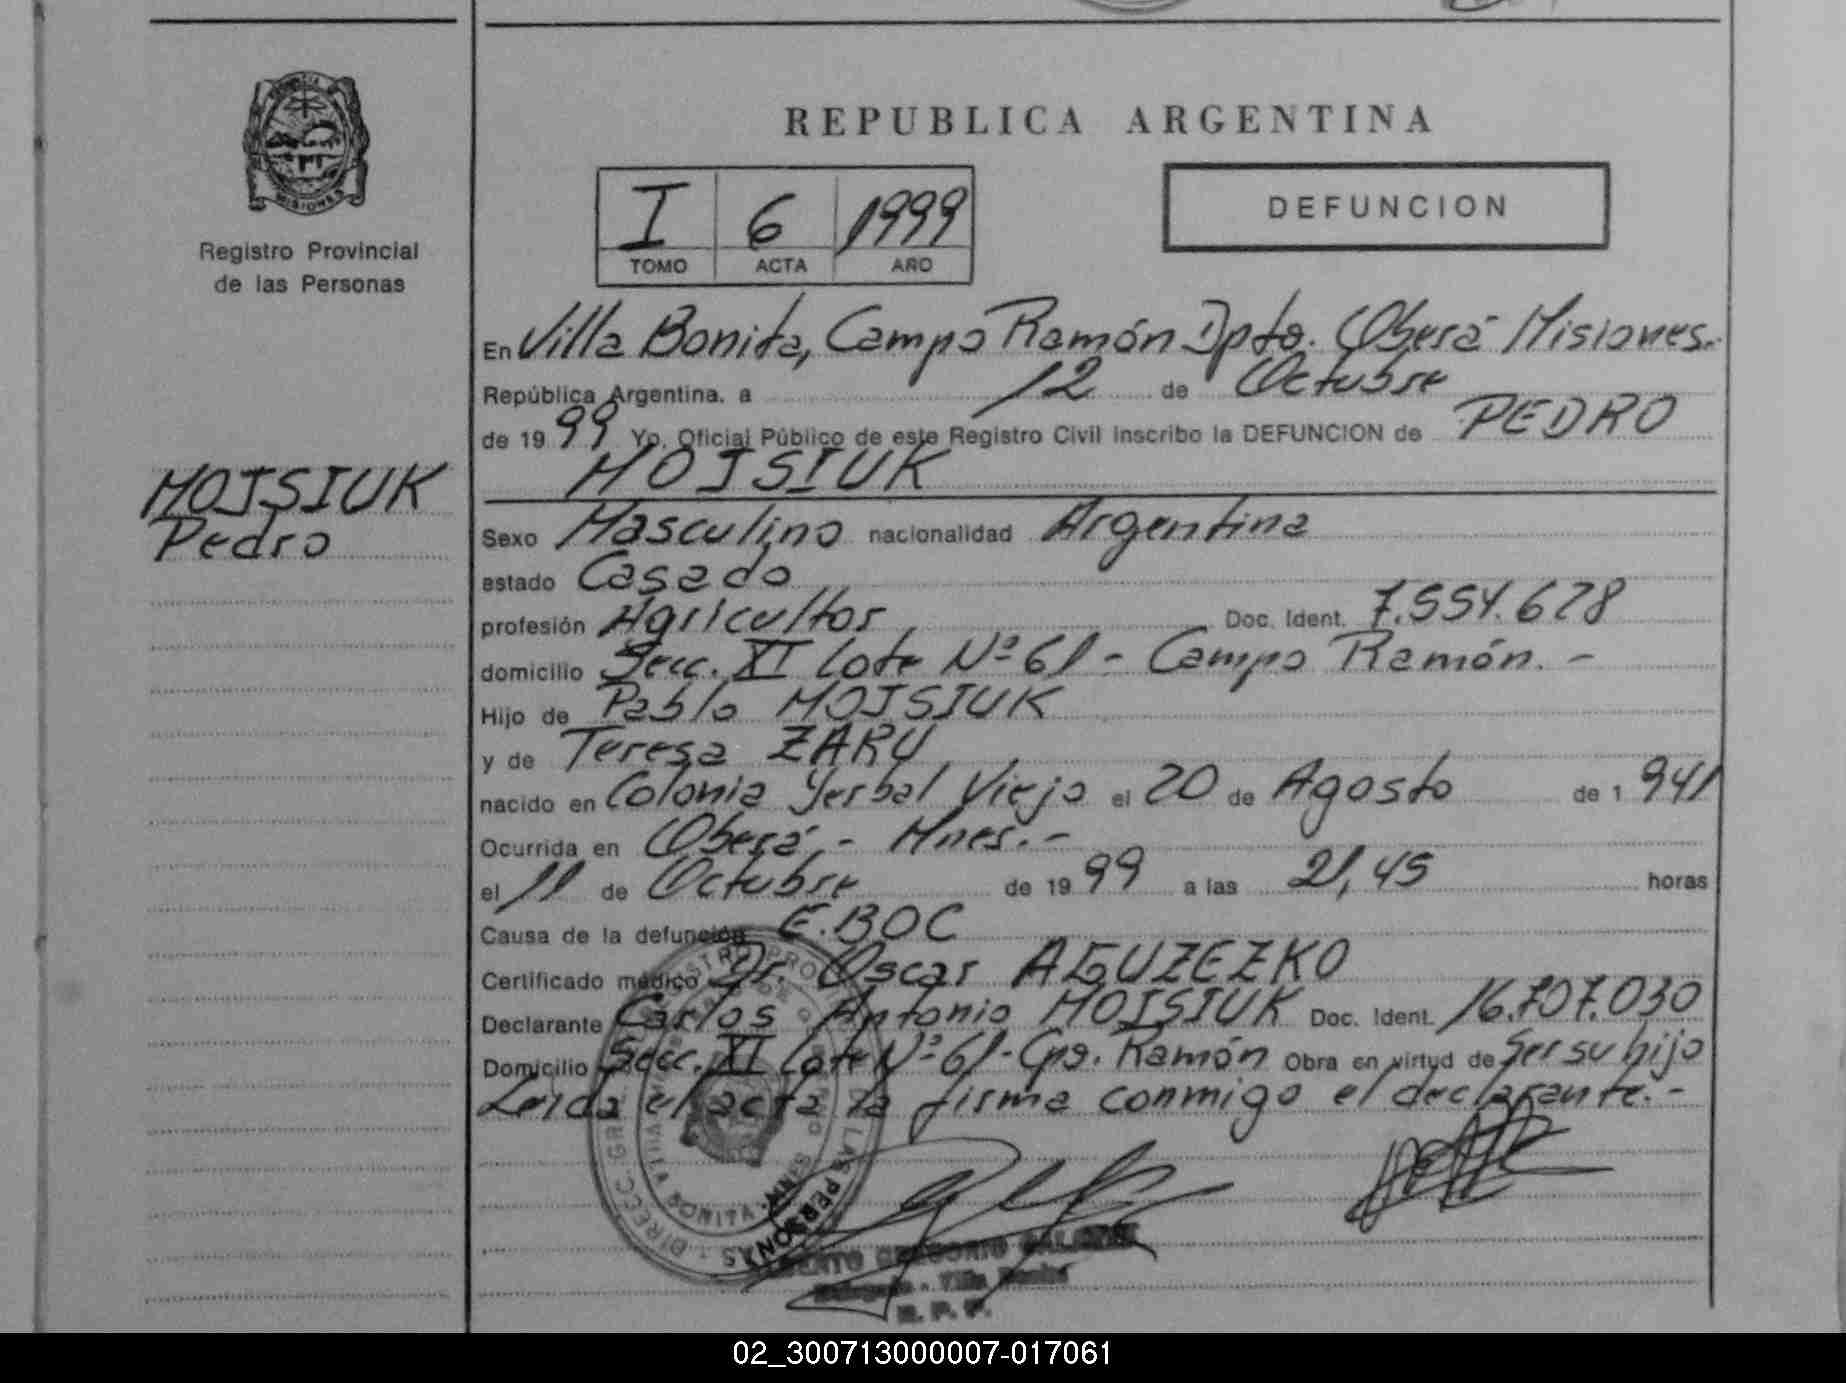 REPUBLICA ARGENTINA
I 6 1999
TOMO ACTA AÑO
DEFUNCION
MISIONES
Registro Provincial
de las Personas
MOJSIUK
Pedro
En Villa Bonita, Campo Ramón Dpto. Oberá Misiones.-
República Argentina, a 12 de Octubre
de 19 99 Yo, Oficial Público de este Registro Civil inscribo la DEFUNCION de PEDRO
MOJSIUK
Sexo Masculino nacionalidad Argentina
estado Casado
profesión Agricultor Doc. Ident. 7.554.628
domicilio Secc. XI Lote Nº 61 - Campo Ramón. -
Hijo de Pablo MOJSIUK
y de Teresa ZARU
nacido en Colonia Yerbal Viejo el 20 de Agosto de 1 941
Ocurrida en Oberá - Mnes. -
el 11 de Octubre de 19 99 a las 21,45 horas
Causa de la defunción E.BOC
Certificado médico Dr. Oscar AGUZEZKO
Declarante Carlos Antonio MOJSIUK Doc. Ident. 16.707.030
Domicilio Secc. XI Lote Nº 61- Cpo. Ramón Obra en virtud de Ser su hijo
Leída el acta la firma conmigo el declarante.-
DIRECC. GRAL. REGISTRO PROVINCIAL DE LAS PERSONAS
VILLA BONITA - MNES
GREGORIO
Villa Bonita
R. P. P.
02_300713000007-017061